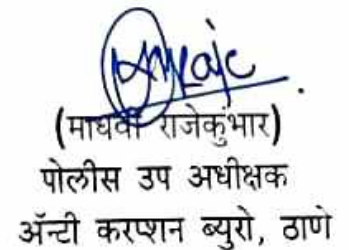 (माधवी राजेकुंभार)
पोलीस उप अधीक्षक
ॲन्टी करप्शन ब्युरो, ठाणे